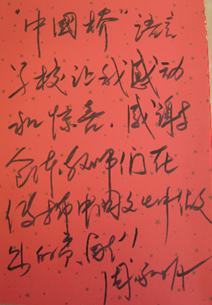 "中國桥"语言
学校让我感动
和惊喜。感谢
全体教师们在
传播中国文化中做
出的贡献！